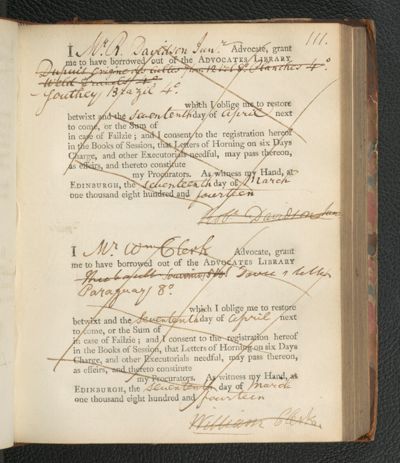 111.
I Mr. R. Davidson Junr. Advocate, grant
me to have borrowed out of the ADVOCATES LIBRARY
Dupuis Origine 4°
Southey Brazil 4°.
which I oblige me to restore
betwixt and the seventeenth day of April next
to come, or the Sum of
in case of Failzie; and I consent to the registration hereof
in the Books of Session, that Letters of Horning on six Days
Charge, and other Executorials needful, may pass thereon,
as effeirs, and thereto constitute
my Procurators. As witness my Hand, at
EDINBURGH, the seventeenth day of March
one thousand eight hundred and fourteen
Robt. Davidson Jun
I Mr Wm Clerk Advocate, grant
me to have borrowed out of the ADVOCATES LIBRARY
Letters
Paraguay 8°.
which I oblige me to restore
betwixt and the seventeenth day of April next
to come, or the Sum of
in case of Failzie; and I consent to the registration hereof
in the Books of Session, that Letters of Horning on six Days
Charge, and other Executorials needful, may pass thereon,
as effeirs, and thereto constitute
my Procurators. As witness my Hand, at
EDINBURGH, the seventeenth day of March
one thousand eight hundred and fourteen
William Clerk